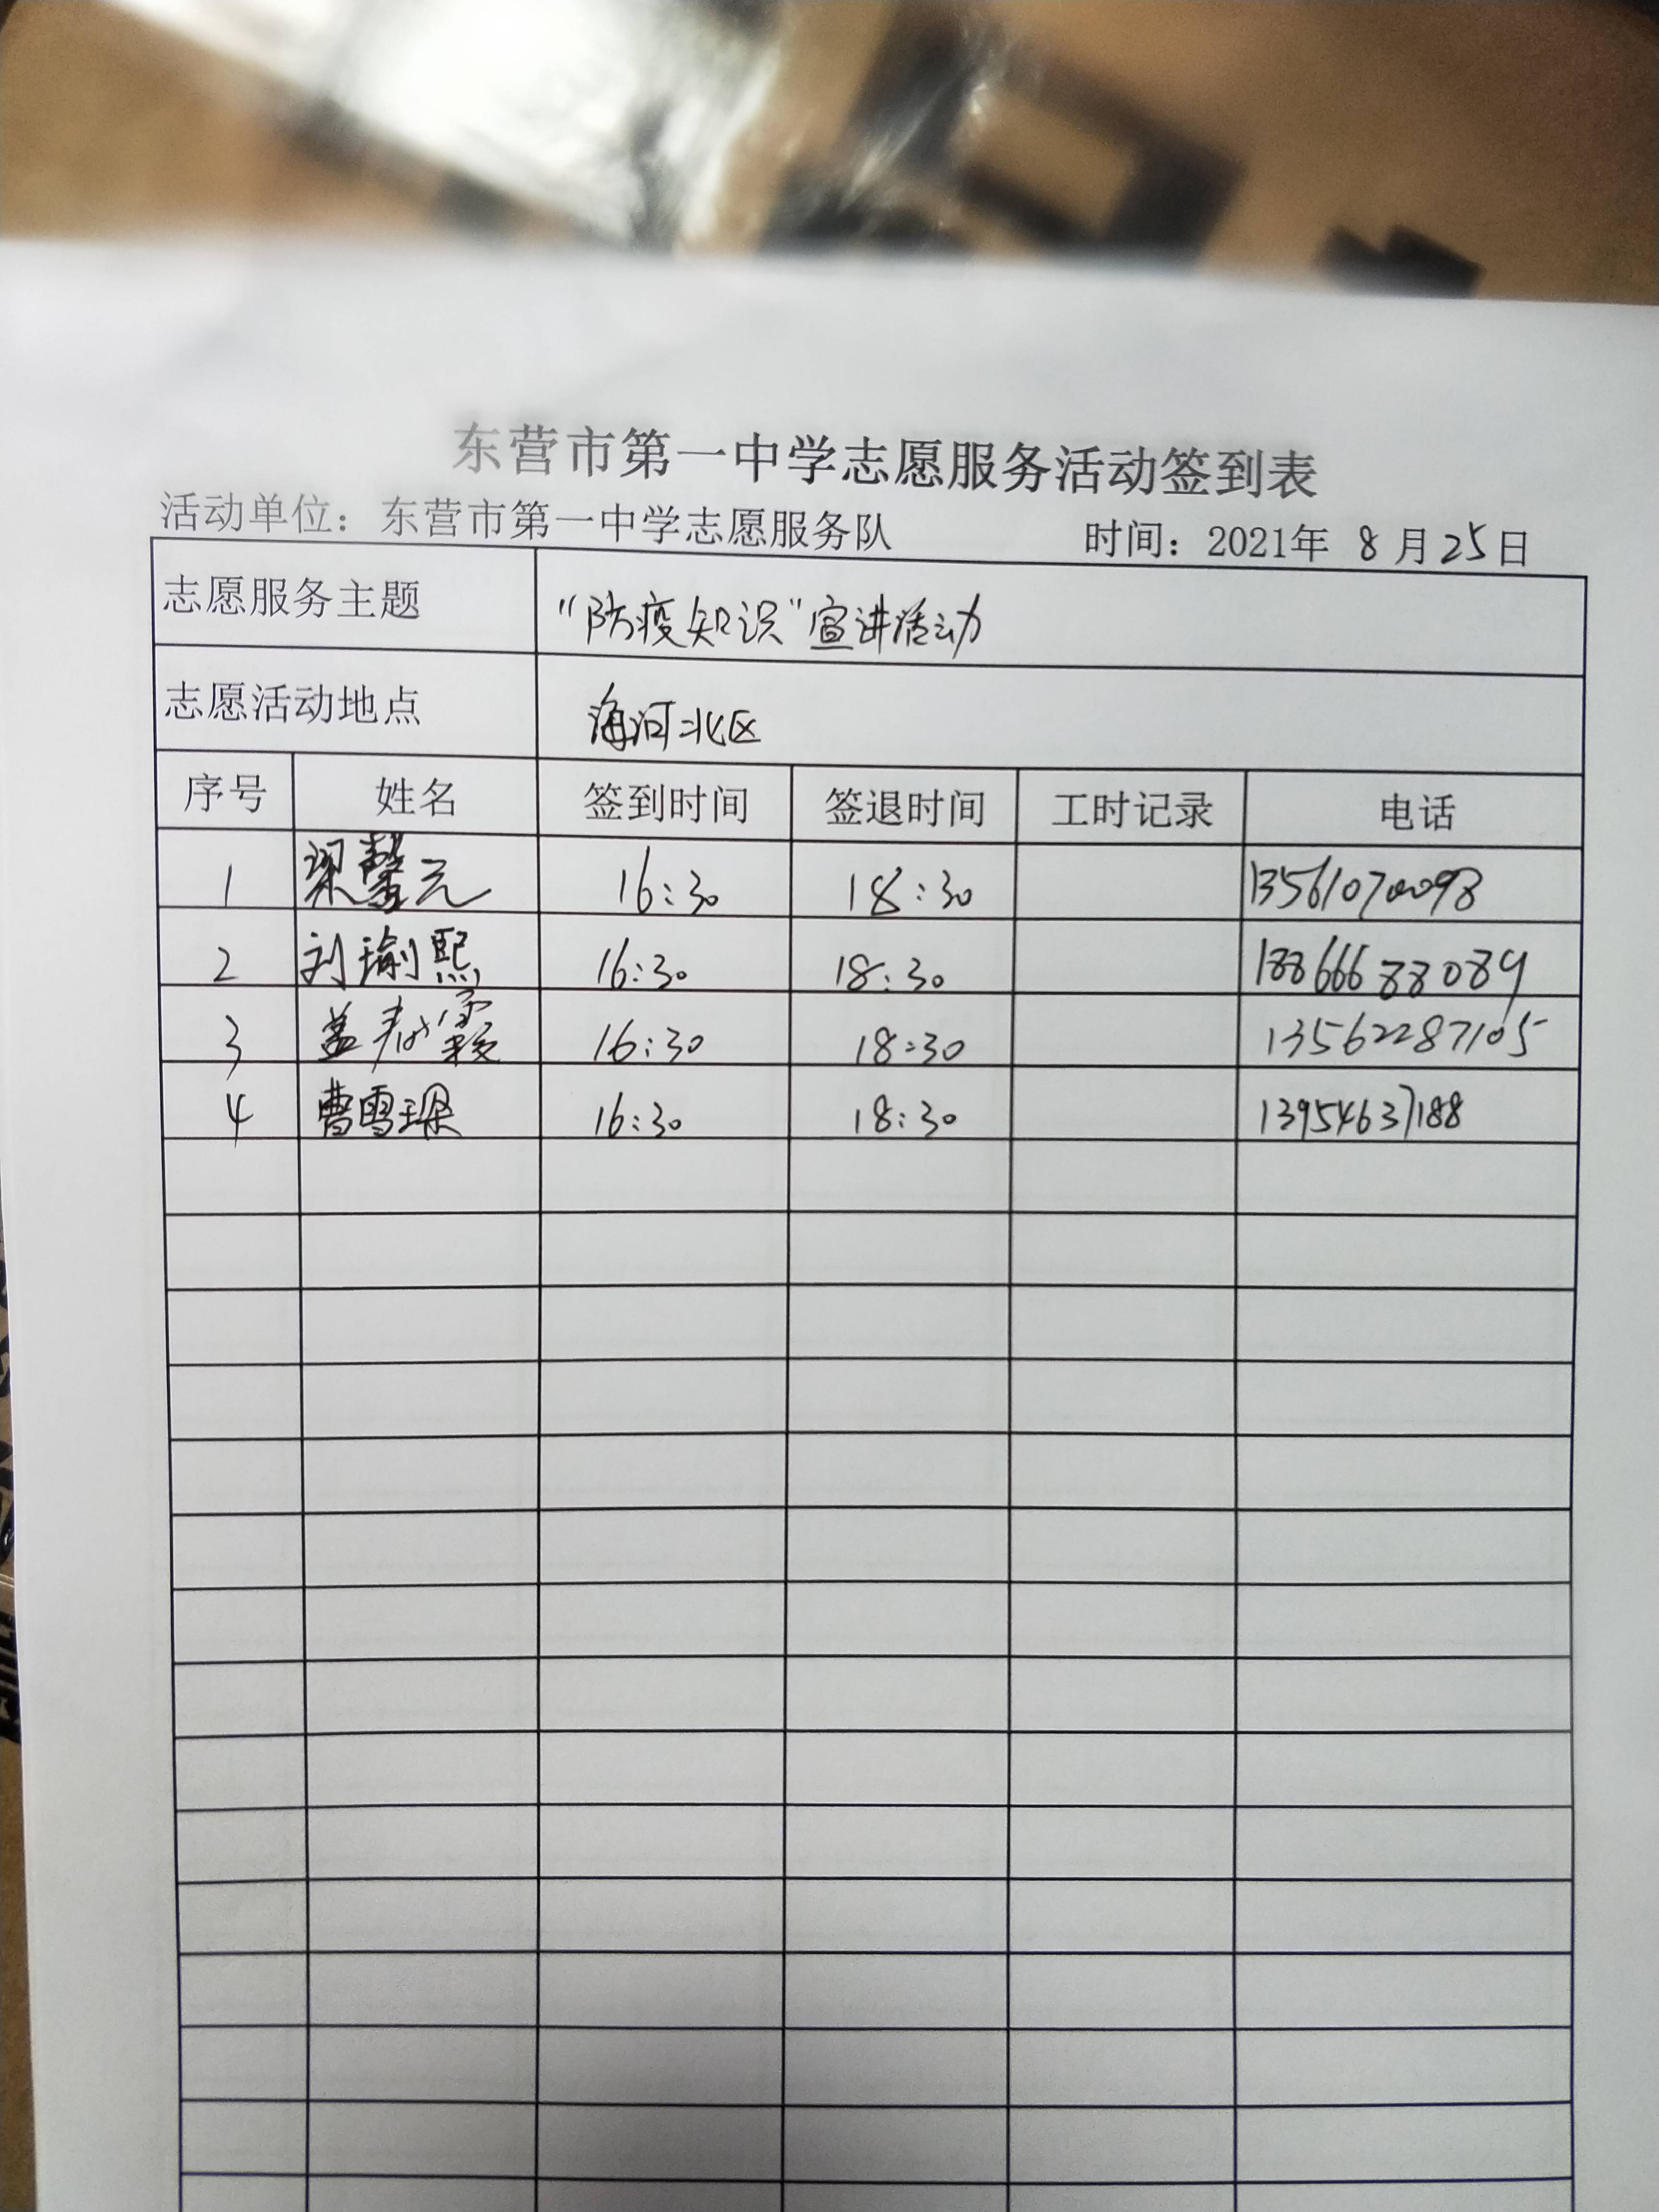 东营市第一中学志愿服务活动签到表
活动单位：东营市第一中学志愿服务队 时间：2021年 8 月 25 日
志愿服务主题 “防疫知识”宣讲活动
志愿活动地点 海河北区
序号 姓名 签到时间 签退时间 工时记录 电话
1 梁馨元 16:30 18:30 13561070098
2 刘瑜熙 16:30 18:30 18866688089
3 盖 16:30 18:30 13562287105
4 曹雪 16:30 18:30 13954637188